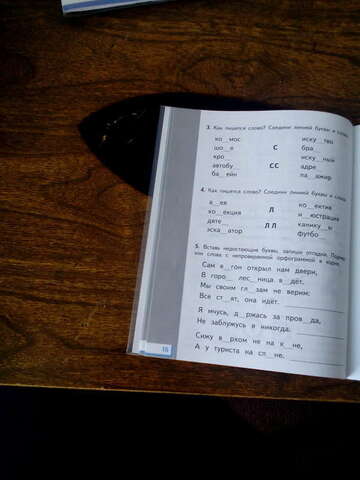 3. Как пишется слово? Соедини линией буквы и слова
ко__мос иску__тво
шо__е С бра__
кро__ иску__ный
автобу__ СС адре__
ба__ейн па__ажир
4. Как пишется слово? Соедини линией буквы и слова
а__ея ко__ектив
ко__екция Л и__юстрация
дяте__ каник__ы
эска__атор Л Л футбо__
5. Вставь недостающие буквы, запиши отгадки.
слова с непроверяемой орфограммой в корне.
Сам в__гон открыл нам двери,
В горо__ лес__ница в__дёт.
Мы своим гл__зам не верим:
Все ст__ят, она идёт.
Я мчусь, д__ржась за пров__да,
Не заблужусь я никогда.
Сижу в__рхом не на к__не,
А у туриста на сп__не.
16